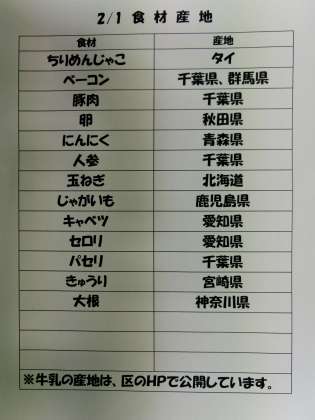 2/1 食材産地
食材 産地
ちりめんじゃこ タイ
ベーコン 千葉県、群馬県
豚肉 千葉県
卵 秋田県
にんにく 青森県
人参 千葉県
玉ねぎ 北海道
じゃがいも 鹿児島県
キャベツ 愛知県
セロリ 愛知県
パセリ 千葉県
きゅうり 宮崎県
大根 神奈川県
※牛乳の産地は、区のHPで公開しています。